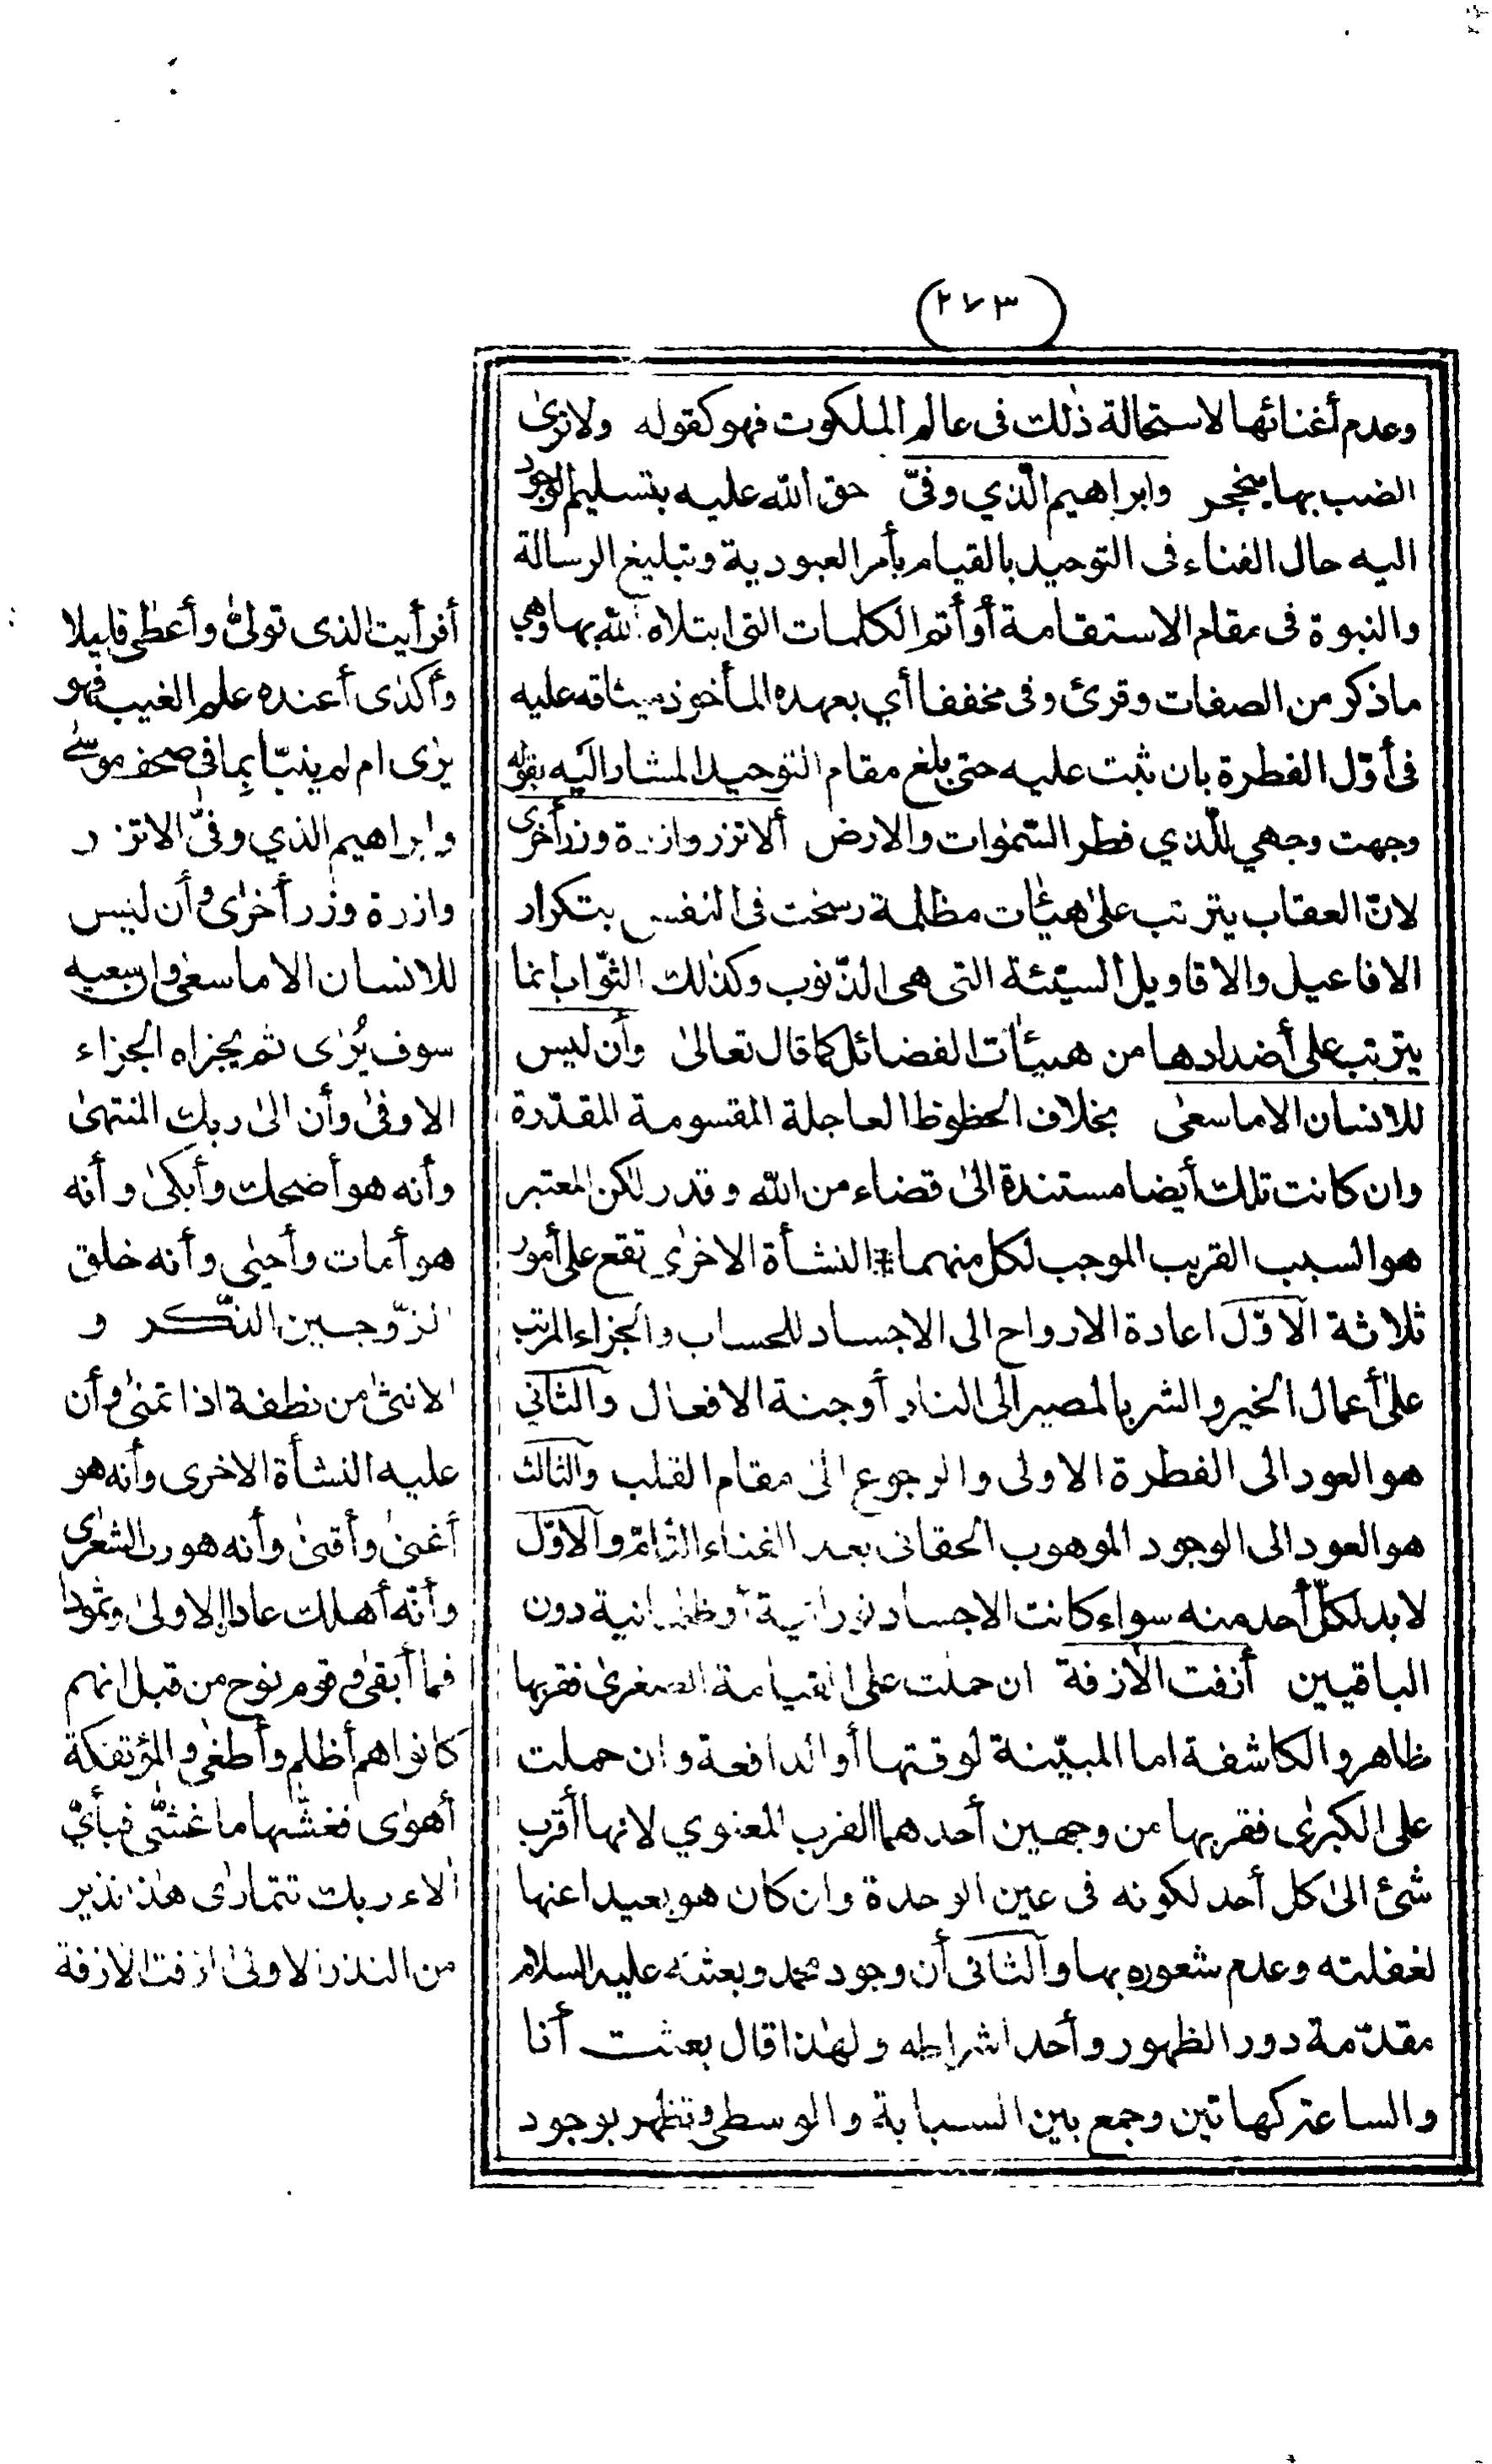 (٢٧٣)
وعدم أغنائها لاستحالة ذٰلك فى عالم الملكوت فهو كقوله ولا ترىٰ
الضب بها ينجحر وابراهيم الّذي وفىّٰ حق الله عليه بتسليم الوجود
اليه حال الفناء فى التوحيد بالقيام بأمر العبودية وتبليغ الرسالة
والنبوة فى مقام الاستقامة أو أتم الكلمات التى ابتلاه الله بها وهي
ما ذكر من الصفات وقرئ وفى مخففا أي بعهده المأخوذ ميثاقه عليه
فى أوّل الفطرة بان ثبت عليه حتى بلغ مقام التوحيد المشار اليه بقوله
وجهت وجهي للّذي فطر السّمٰوات والارض ألا تزر وازرة وزر أخرىٰ
لانّ العقاب يترتب علىٰ هيئات مظلمة رسخت فى النفس بتكرار
الافاعيل والاقاويل السيّئة التى هى الذّنوب وكذٰلك الثّواب انما
يترتب على أضدادها من هيئات الفضائل كما قال تعالىٰ وأن ليس
للانسان الا ما سعىٰ بخلاف الحظوظ العاجلة المقسومة المقدّرة
وان كانت تلك أيضا مستندة الىٰ قضاء من الله وقدر لكن المعتبر
هو السبب القريب الموجب لكل منهما # النشأة الاخرٰى تقع على أمور
ثلاثة الاوّل اعادة الارواح الى الاجساد للحساب والجزاء المرتب
علىٰ أعمال الخير والشر بالمصير الى النار أو جنة الافعال والثّاني
هو العود الى الفطرة الاولى والرجوع الىٰ مقام القلب والثالث
هو العود الى الوجود الموهوب الحقانى بعد الفناء التّامّ والاوّل
لا بد لكلّ أحد منه سواء كانت الاجساد نورانية أو ظلمانية دون
الباقيين أزفت الآزفة ان حملت على القيامة الصغرىٰ فقربها
ظاهر والكاشفة اما المبيّنة لوقتها أو الدافعة وان حملت
على الكبرٰى فقربها من وجهين أحدهما القرب المعنوي لانها أقرب
شئ الىٰ كل أحد لكونه فى عين الوحدة وان كان هو بعيدا عنها
لغفلته وعدم شعوره بها والثانى أن وجود محمد وبعثته عليه السلام
مقدّمة دور الظهور وأحد اشراطه ولهٰذا قال بعثت أنا
والساعة كهاتين وجمع بين السبابة والوسطى وتظهر بوجود
أفرأيت الذى تولىّٰ وأعطٰى قليلا
وأكدٰى أعنده علم الغيب فهو
يرٰى ام لم ينبّأ بما فى صحف موسىٰ
وابراهيم الذي وفىّٰ الا تزر
وازرة وزر أخرٰى وأن ليس
للانسان الا ما سعىٰ وان سعيه
سوف يُرٰى ثم يجزاه الجزاء
الاوفىٰ وأن الىٰ ربك المنتهىٰ
وأنه هو أضحك وأبكىٰ وأنه
هو أمات وأحيىٰ وأنه خلق
الزّوجين الذّكر و
الانثىٰ من نطفة اذا تمنىٰ وأن
عليه النشأة الاخرى وأنه هو
أغنىٰ وأقنىٰ وأنه هو رب الشعرٰى
وأنّه أهلك عادا الاولىٰ وثمودا
فما أبقىٰ وقوم نوح من قبل انهم
كانوا هم أظلم وأطغىٰ والمؤتفكة
أهوٰى فغشّٰها ما غشّٰى فبأىّ
اٰلاء ربك تتمارٰى هٰذا نذير
من النذر الاولىٰ ازفت الاٰزفة